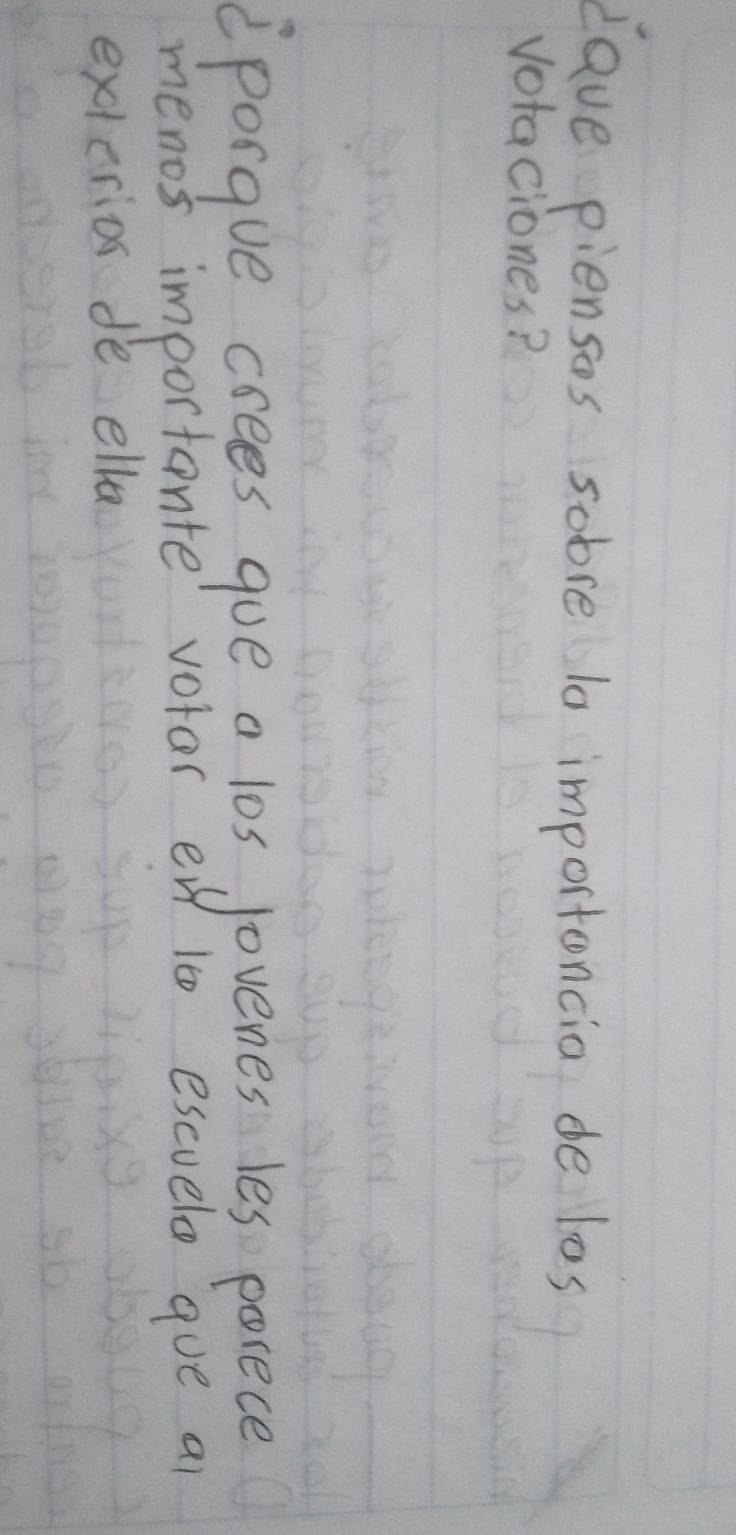 ¿que piensas sobre la importancia de las
votaciones?
¿porque crees que a los jovenes les parece
menos importante votar en la escuela que al
exterior de ella